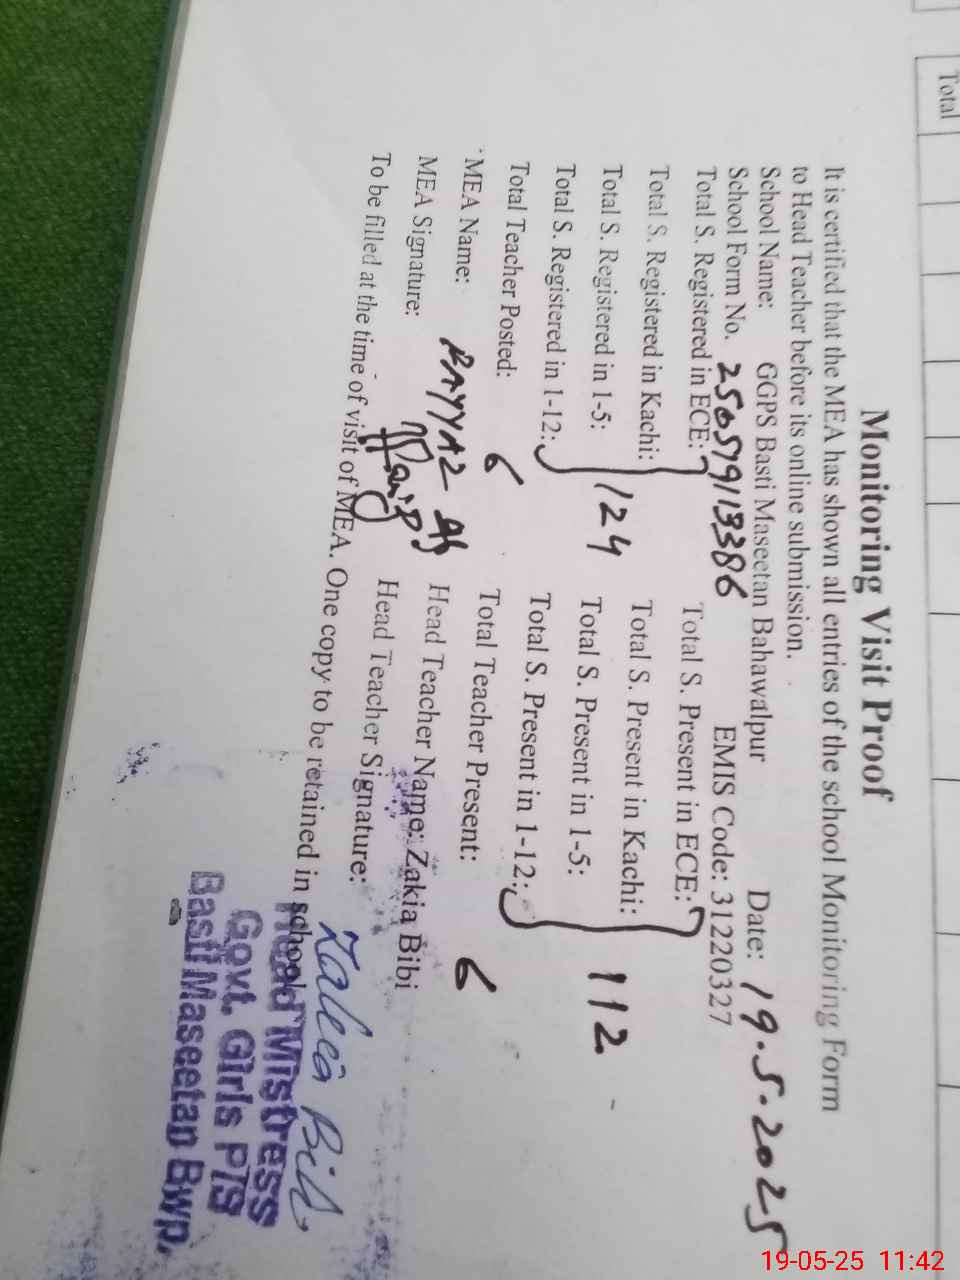 Total
Monitoring Visit Proof
It is certified that the MEA has shown all entries of the school Monitoring Form
to Head Teacher before its online submission.
School Name: GGPS Basti Maseetan Bahawalpur Date: 19.5.2025
School Form No. 256579113386 EMIS Code: 31220327
Total S. Registered in ECE: Total S. Present in ECE:
Total S. Registered in Kachi: Total S. Present in Kachi:
Total S. Registered in 1-5: 124 Total S. Present in 1-5: 112
Total S. Registered in 1-12: Total S. Present in 1-12:
Total Teacher Posted: 6 Total Teacher Present: 6
MEA Name: Head Teacher Name: Zakia Bibi
MEA Signature: Head Teacher Signature: Zakia Bibi
To be filled at the time of visit of MEA. One copy to be retained in school.
Head Mistress
Govt. Girls P/S
Basti Maseetan Bwp.
19-05-25 11:42